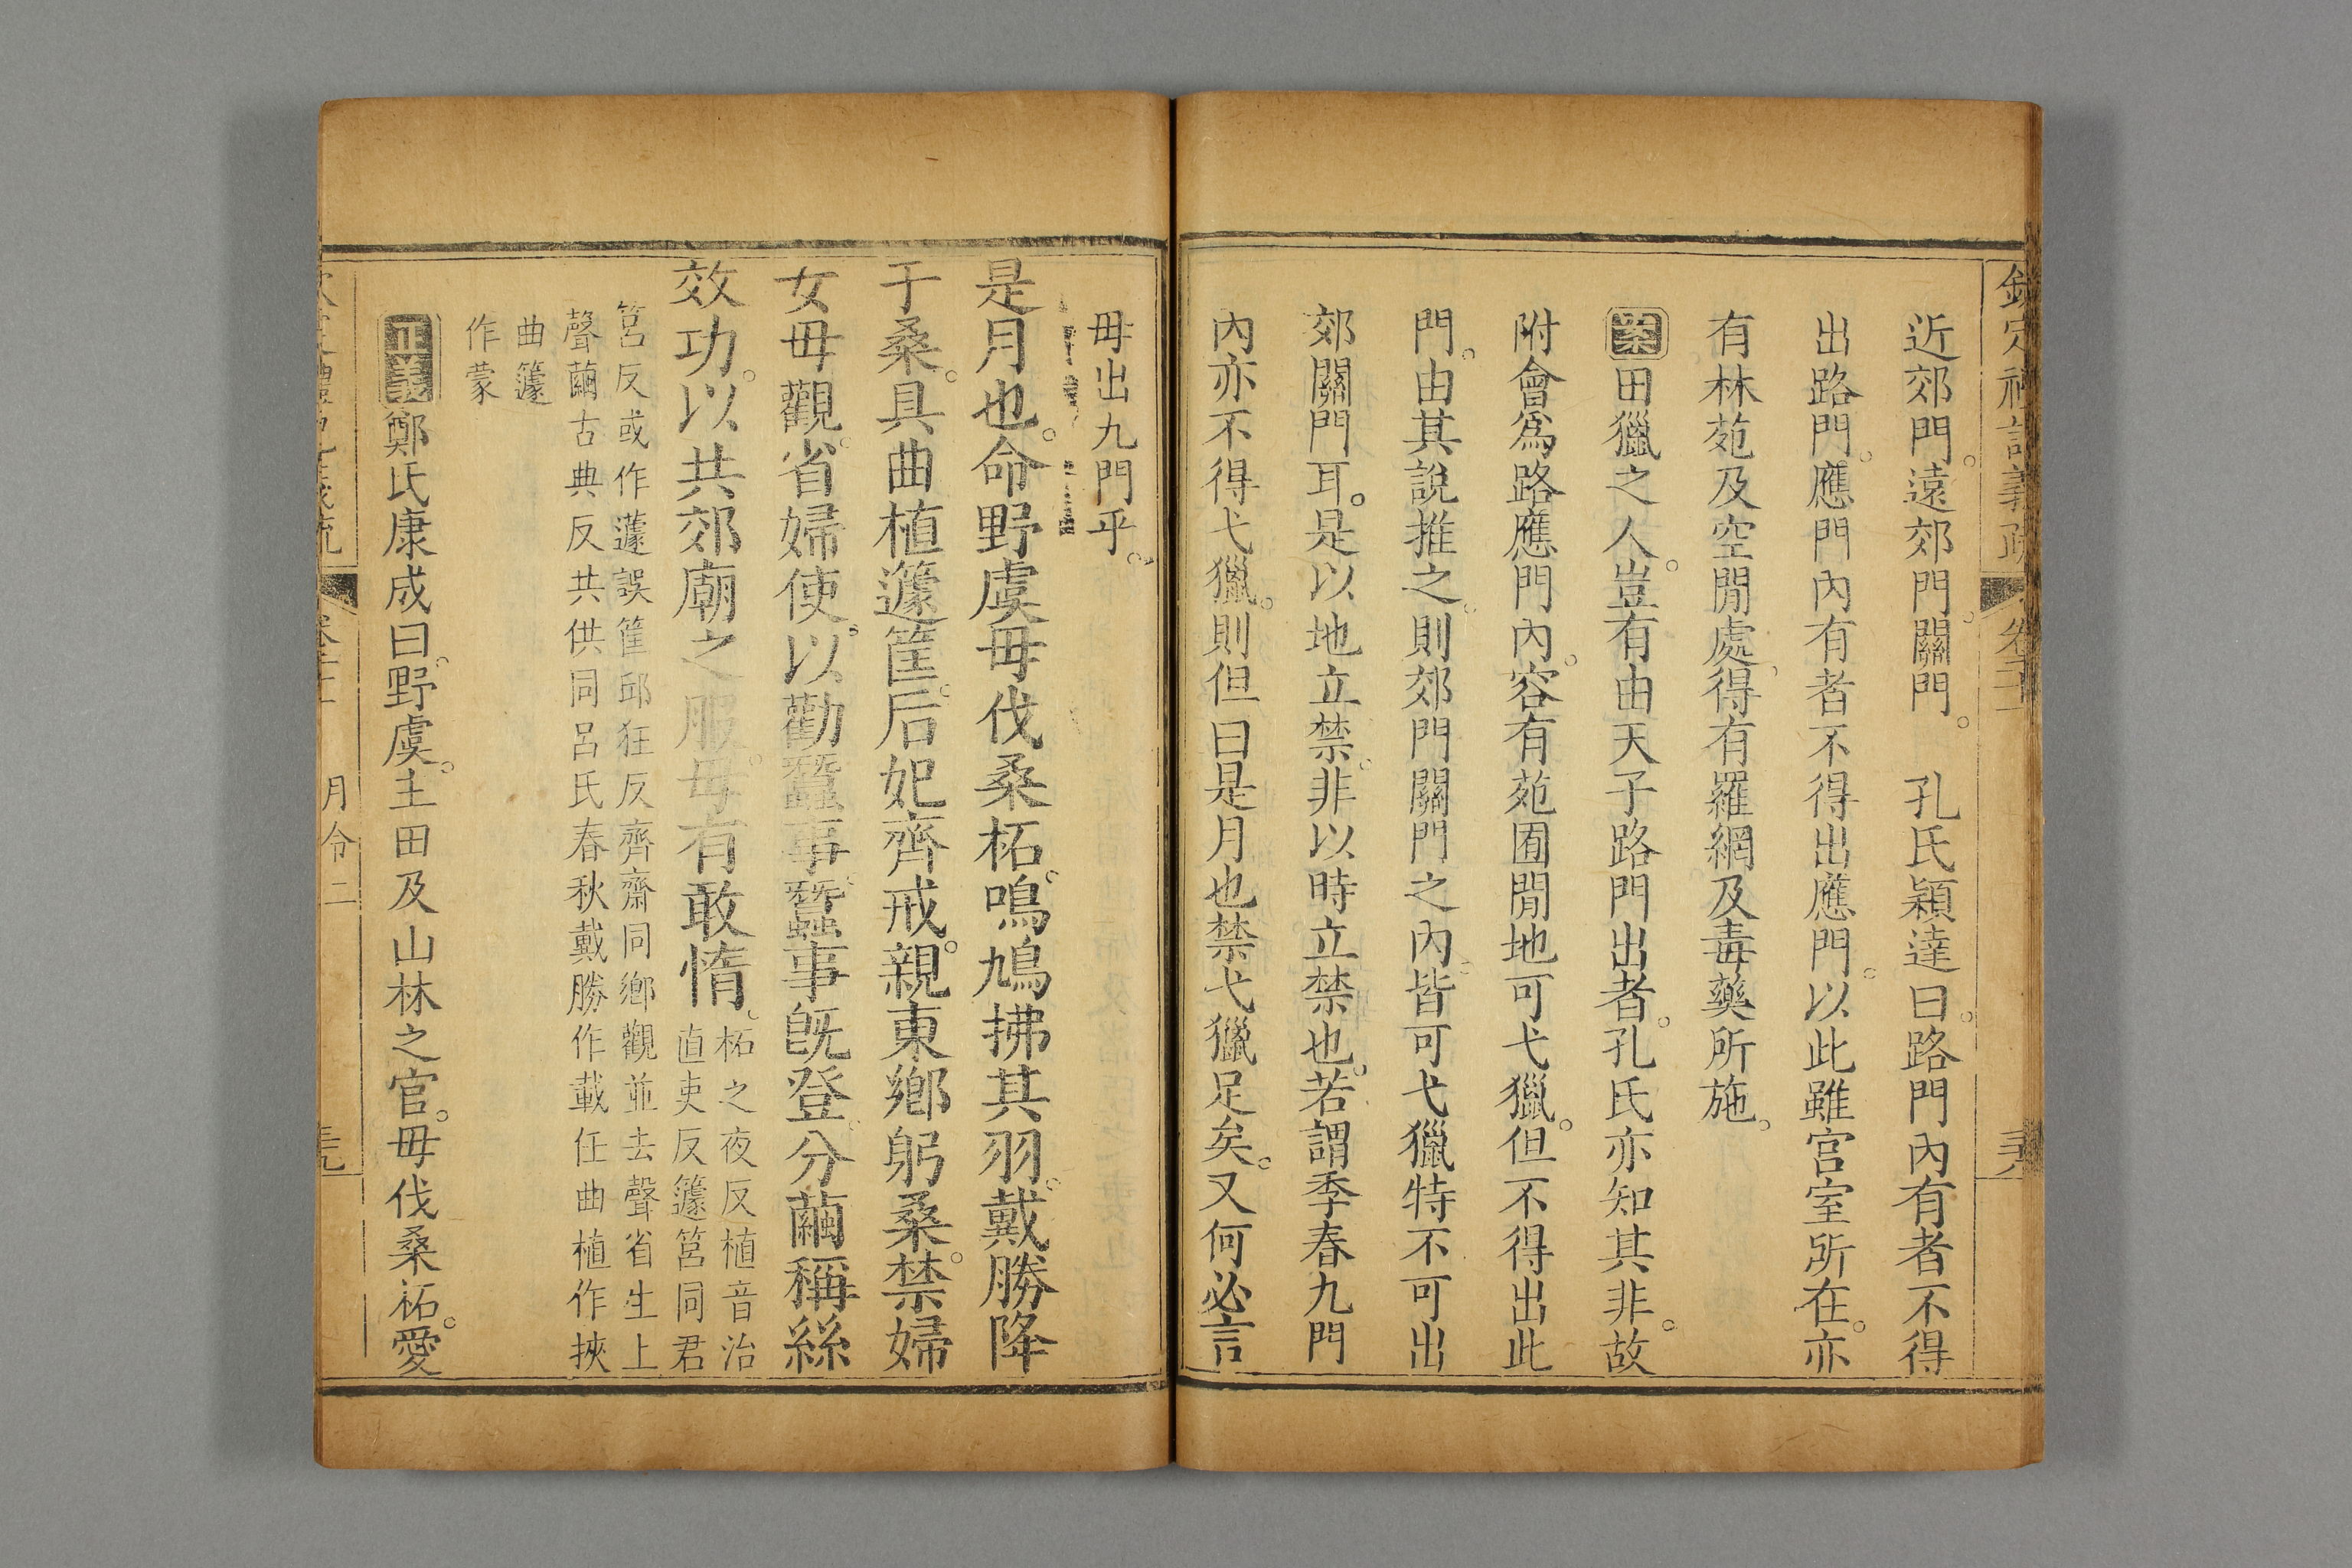 近郊門。遠郊門。關門。　孔氏穎達曰。路門內有者不得
出路門。應門內有者不得出應門。以此雖宮室所在。亦
有林苑及空閒處。得有羅網及毒藥所施。
案田獵之人。豈有由天子路門出者。孔氏亦知其非。故
附會爲路應門內。容有苑囿閒地可弋獵。但不得出此
門。由其說推之。則郊門關門之內。皆可弋獵特不可出
郊關門耳。是以地立禁。非以時立禁也。若謂季春九門
內亦不得弋獵。則但曰是月也禁弋獵足矣。又何必言
毋出九門乎。
是月也。命野虞毋伐桑柘。鳴鳩拂其羽。戴勝降
于桑。具曲植籧筐。后妃齊戒。親東鄉躬桑。禁婦
女毋觀。省婦使。以勸蠶事。蠶事旣登。分繭稱絲
效功。以共郊廟之服。毋有敢惰。
柘之夜反植音治
直吏反籧筥同君
筥反或作蘧誤筐邱狂反齊齋同鄉觀並去聲省生上
聲繭古典反共供同呂氏春秋戴勝作戴任曲植作挾
曲籧
作蒙
正義鄭氏康成曰。野虞。主田及山林之官。毋伐桑柘。愛
月令二